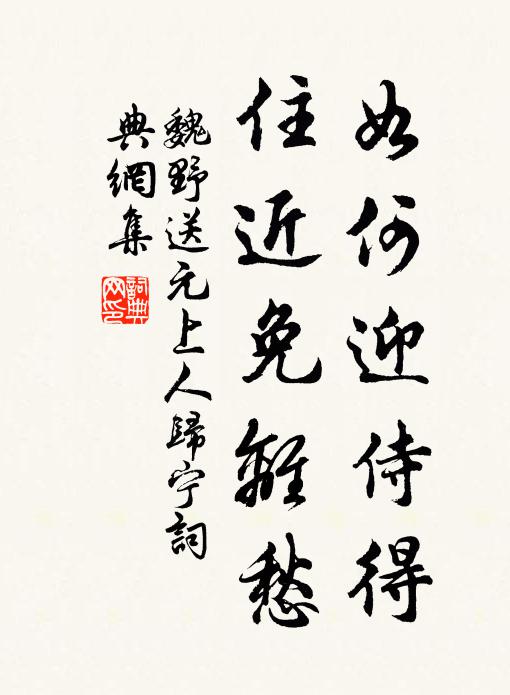 如何迎侍得
住近免離愁
魏野送元上人歸宁詞
典網集
詞典
网印